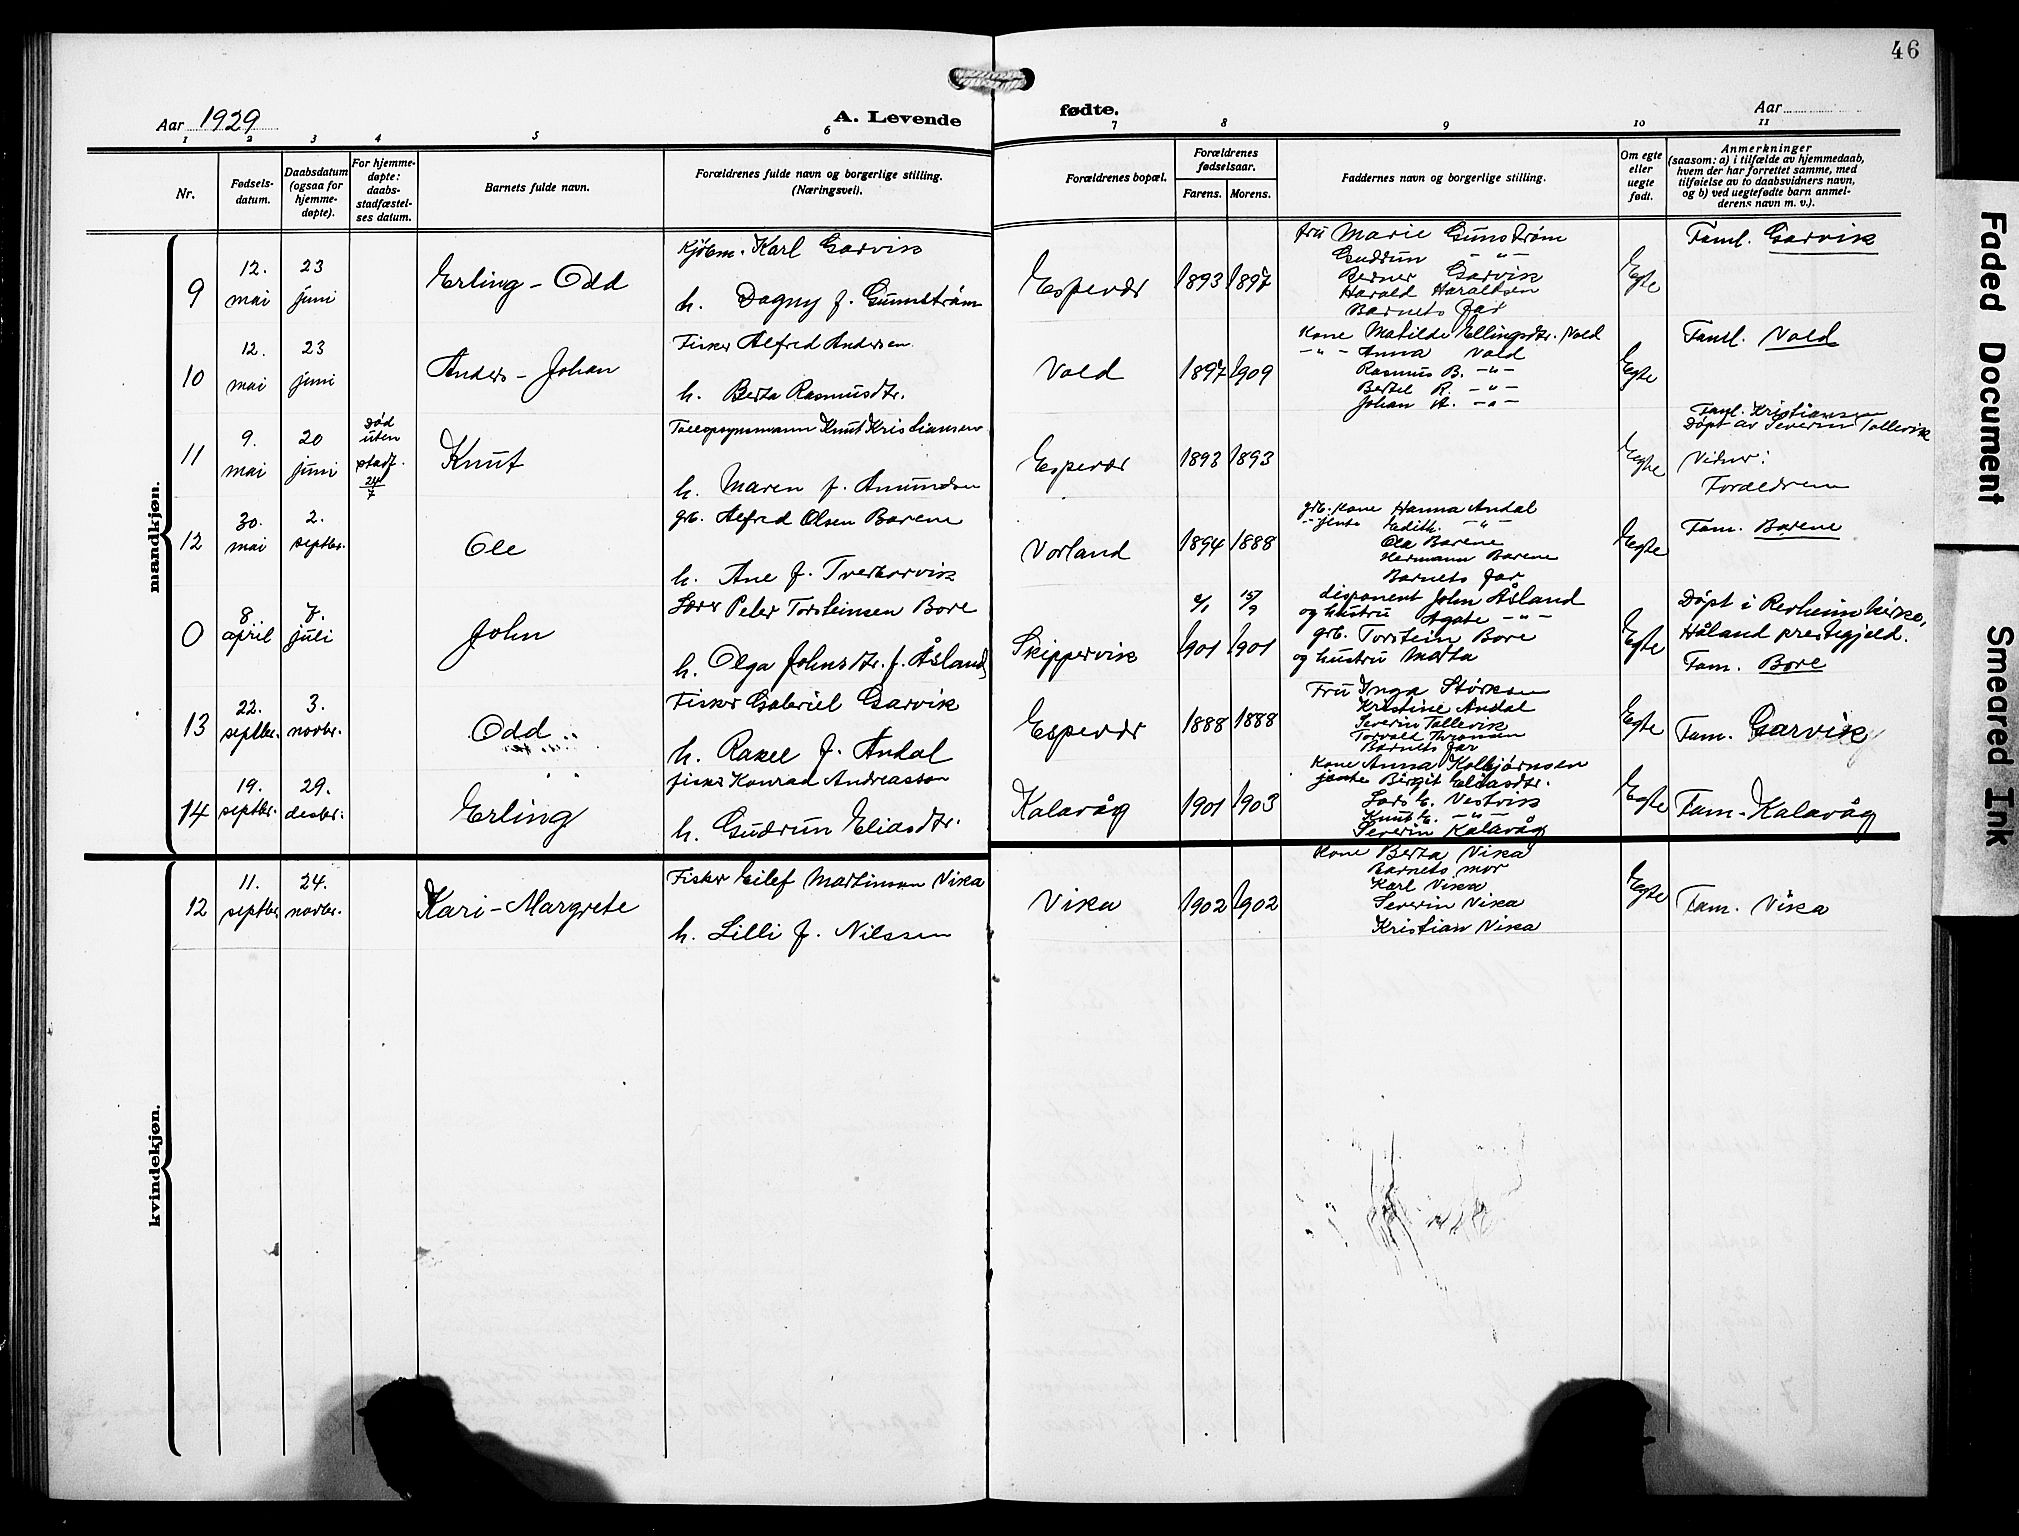 46
Aar 1929
A. Levende
fødte.
Aar
1 2 3 4 5 6 7 8 9 10 11
Nr.
Fødsels-
datum.
Daabsdatum
(ogsaa for
hjemme-
døpte).
For hjemme-
døpte:
daabs-
stadfæstel-
ses datum.
Barnets fulde navn.
Forældrenes fulde navn og borgerlige stilling.
(Næringsvei).
Forældrenes bopæl.
Forældrenes
fødselsaar.
Farens. Morens.
Faddernes navn og borgerlige stilling.
Om egte
eller
uegte
født.
Anmerkninger
(saasom: a) i tilfælde av hjemmedaab,
hvem der har forrettet samme, med
tilføielse av to daabsvidners navn,
og b) ved uegtefødte barn anmel-
derens navn m. v.).
mandkjøn.
9
12.
mai
23
juni
Erling - Odd
Kjøbm. Karl Garvik
h. Dagny f. Gunnstrøm
Espevær
1893 1897
fru Marie Gunstrøm
Gudrun - " -
Berner Garvik
Harald Haraldsen
Barnets far
Egte
Faml. Garvik
10
12.
mai
23
juni
Anders - Johan
Fisker Alfred Andersen
h. Berta Rasmusdtr.
Vold
1897 1909
Kone Matilde Ellingsdtr. Vold
- " - Anna Vold
Rasmus B. - " -
Bertel R. - " -
Johan A. - " -
Egte
Faml. Vold
11
9.
mai
20
juni
død
uten
stadf.
24
7
Knut
Tollopsynsmann Knut Kristiansen
h. Maren f. Amundsen
Espevær
1893 1893
Egte
Faml. Kristiansen
Døpt av Severin Tollevik
Vidner:
Forældrene
12
30.
mai
2.
septbr.
Ole
grb. Alfred Olsen Barene
h. Ane f. Tverborvik
Vorland
1894 1888
grb. kone Hanna Andal
" jente Edith. - " -
Ola Barene
Hermann Barene
Barnets far
Egte
Fam. Barene
0
8.
april
7.
juli
John
Lærer Peter Torsteinsen Bore
h. Olga Johnsdtr. f. Åsland
Skippervik
1901
15/9
1901
disponent John Åsland
og hustru Agate - " -
grb. Torstein Bore
og hustru Marta
Egte
Døpt i Revheim kirke,
Håland prestegjeld.
Fam. Bore
13
22.
septbr.
3.
novbr.
Odd
Fisker Gabriel Garvik
h. Rakel f. Andal
Espevær
1888 1888
Fru Inga Størksen
Kristine Andal
Severin Tollevik
Torvald Thronsen
Barnets far
Egte
Fam. Garvik
14
19.
septbr.
29.
desbr.
Erling
fisker Konrad Andreassen
h. Gudrun Eliasdtr.
Kalavåg
1901 1903
Kone Anna Kolbjørnsen
jente Birgit Eliasdtr.
Lars E. Vestvik
Knut E. - " -
Severin Kalavåg
Egte
Fam. Kalavåg
kvindekjøn.
12
11.
septbr
24.
novbr.
Kari - Margrete
Fisker Eilef Martinsen Vika
h. Lilli f. Nilssen
Vika
1902 1902
Kone Berta Vika
Barnets mor
Karl Vika
Severin Vika
Kristian Vika
Egte
Fam. Vika
Faded Document
Smeared Ink